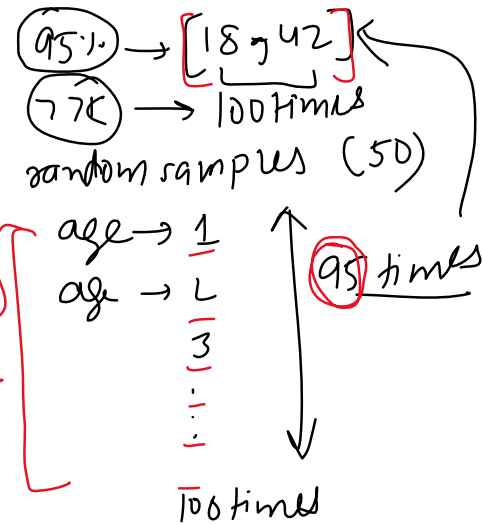 95% → [18, 42]
77K → 100 times
random samples (50)
age → 1
age → 2
3
.
.
.
100 times
95 times